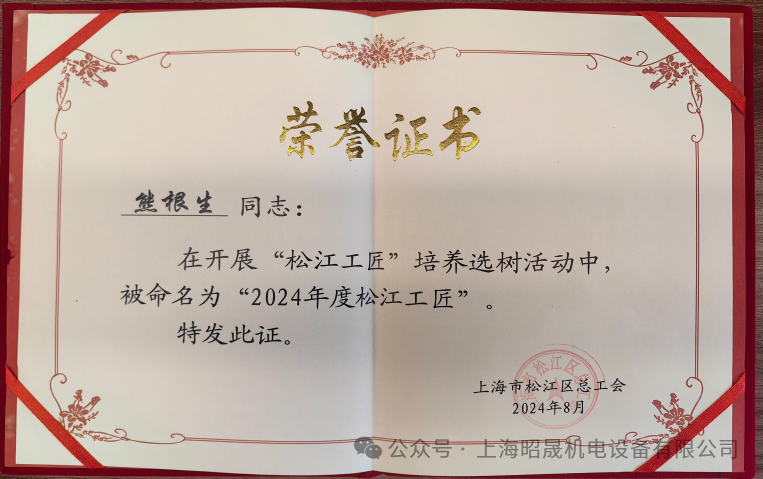 荣誉证书
熊根生 同志：
在开展“松江工匠”培养选树活动中，
被命名为“2024年度松江工匠”。
特发此证。
松江区
上海市松江区总工会
2024年8月
公众号·上海昭晟机电设备有限公司